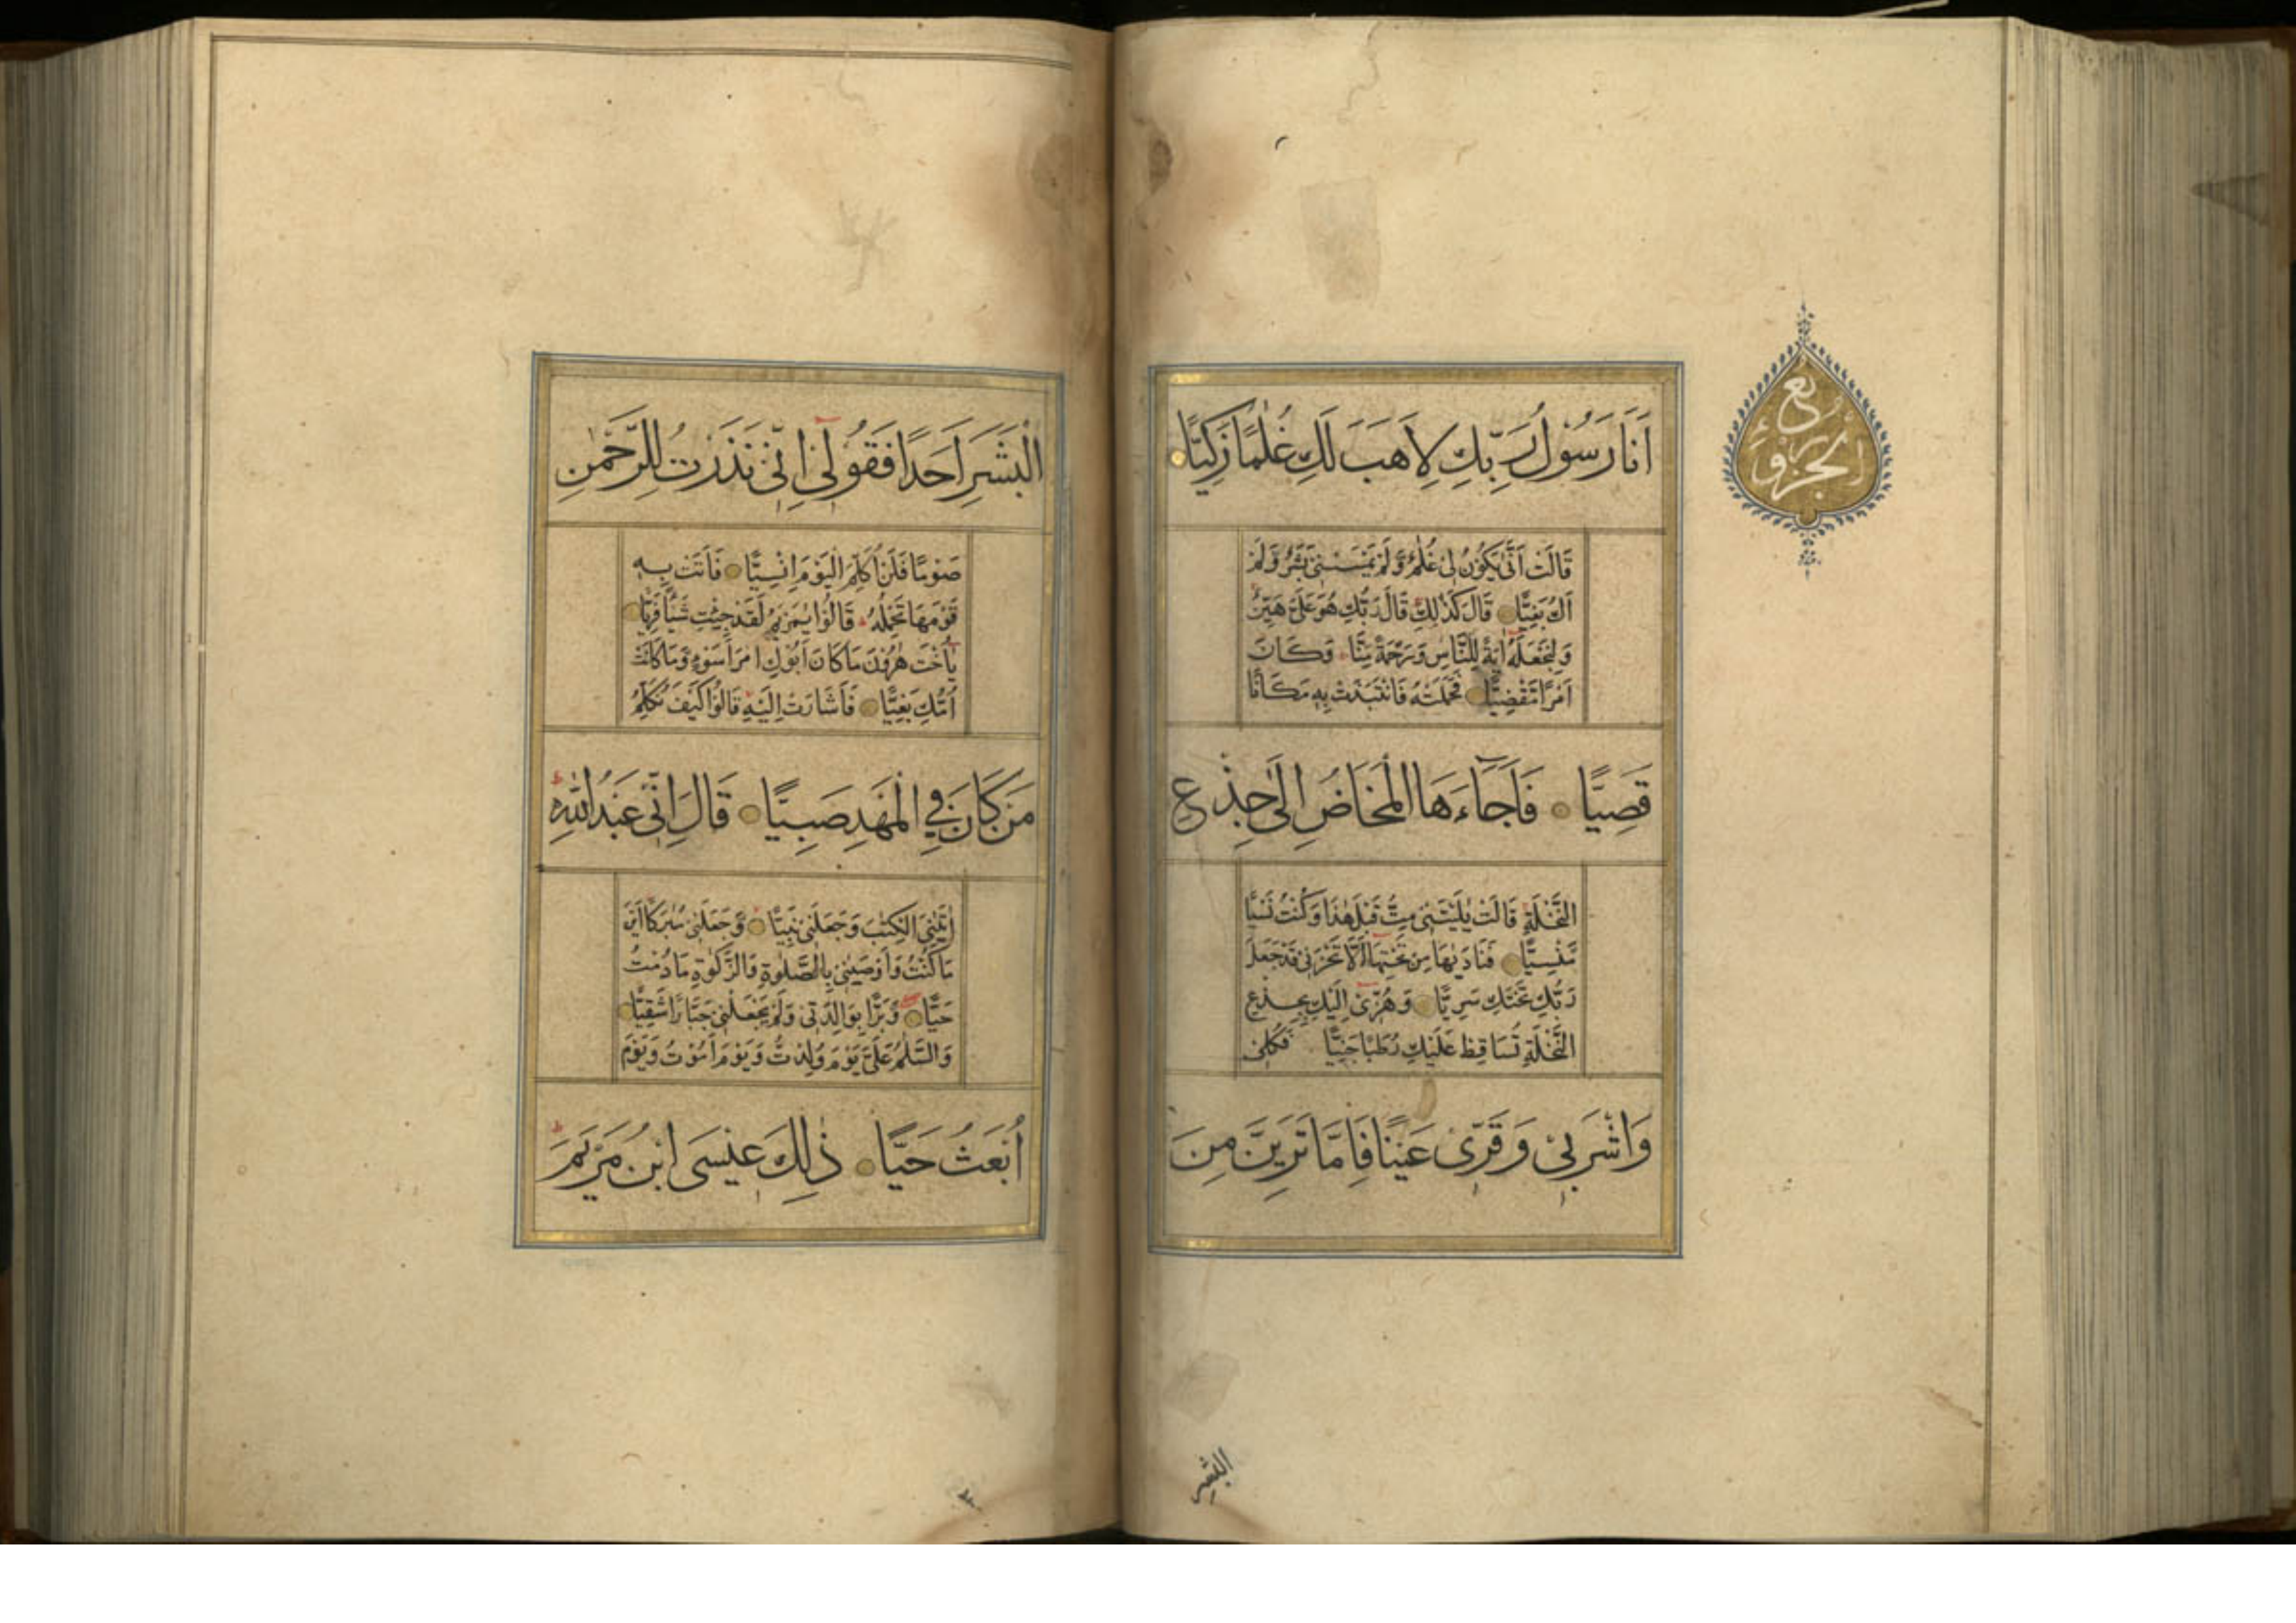 اَنَا رَسُولُ رَبِّكِ لِاَهَبَ لَكِ غُلٰمًا زَكِيًّا
قَالَتْ اَنّٰى يَكُوْنُ لِىْ غُلٰمٌ وَّلَمْ يَمْسَسْنِىْ بَشَرٌ وَّلَمْ
اَكُ بَغِيًّا قَالَ كَذٰلِكِ قَالَ رَبُّكِ هُوَ عَلَىَّ هَيِّنٌ
وَلِنَجْعَلَهٗ اٰيَةً لِلنَّاسِ وَرَحْمَةً مِّنَّا وَكَانَ
اَمْرًا مَّقْضِيًّا فَحَمَلَتْهُ فَانْتَبَذَتْ بِهٖ مَكَانًا
قَصِيًّا فَاَجَآءَهَا الْمَخَاضُ اِلٰى جِذْعِ
النَّخْلَةِ قَالَتْ يٰلَيْتَنِىْ مِتُّ قَبْلَ هٰذَا وَكُنْتُ نَسْيًا
مَّنْسِيًّا فَنَادٰىهَا مِنْ تَحْتِهَا اَلَّا تَحْزَنِىْ قَدْ جَعَلَ
رَبُّكِ تَحْتَكِ سَرِيًّا وَهُزِّىْ اِلَيْكِ بِجِذْعِ
النَّخْلَةِ تُسَاقِطْ عَلَيْكِ رُطَبًا جَنِيًّا فَكُلِىْ
وَاشْرَبِىْ وَقَرِّىْ عَيْنًا فَاِمَّا تَرَيِنَّ مِنَ
ربع
الجزو
البشر
الْبَشَرِ اَحَدًا فَقُوْلِىْ اِنِّىْ نَذَرْتُ لِلرَّحْمٰنِ
صَوْمًا فَلَنْ اُكَلِّمَ الْيَوْمَ اِنْسِيًّا فَاَتَتْ بِهٖ
قَوْمَهَا تَحْمِلُهٗ قَالُوْا يٰمَرْيَمُ لَقَدْ جِئْتِ شَيْـًٔا فَرِيًّا
يٰٓاُخْتَ هٰرُوْنَ مَا كَانَ اَبُوْكِ امْرَاَ سَوْءٍ وَّمَا كَانَتْ
اُمُّكِ بَغِيًّا فَاَشَارَتْ اِلَيْهِ قَالُوْا كَيْفَ نُكَلِّمُ
مَنْ كَانَ فِي الْمَهْدِ صَبِيًّا قَالَ اِنِّىْ عَبْدُ اللّٰهِ
اٰتٰىنِىَ الْكِتٰبَ وَجَعَلَنِىْ نَبِيًّا وَّجَعَلَنِىْ مُبٰرَكًا اَيْنَ
مَا كُنْتُ وَاَوْصٰنِىْ بِالصَّلٰوةِ وَالزَّكٰوةِ مَا دُمْتُ
حَيًّا وَّبَرًّا بِوَالِدَتِىْ وَلَمْ يَجْعَلْنِىْ جَبَّارًا شَقِيًّا
وَالسَّلٰمُ عَلَىَّ يَوْمَ وُلِدْتُّ وَيَوْمَ اَمُوْتُ وَيَوْمَ
اُبْعَثُ حَيًّا ذٰلِكَ عِيْسَى ابْنُ مَرْيَمَ